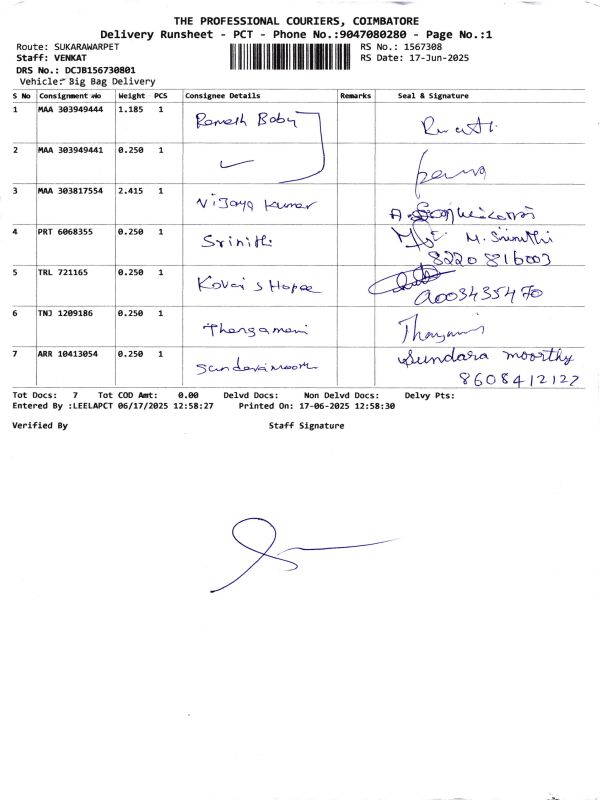 THE PROFESSIONAL COURIERS, COIMBATORE
Delivery Runsheet - PCT - Phone No.:9047080280 - Page No.:1
Route: SUKARAWARPET RS No.: 1567308
Staff: VENKAT RS Date: 17-Jun-2025
DRS No.: DCJB156730801
Vehicle:- Big Bag Delivery
S No Consignment No Weight PCS Consignee Details Remarks Seal & Signature
1 MAA 303949444 1.185 1 Ramesh Baby
2 MAA 303949441 0.250 1
3 MAA 303817554 2.415 1 Vijaya Kumar
4 PRT 6068355 0.250 1 Srinithi M. Srinithi
8220816003
5 TRL 721165 0.250 1 Kovai s Hopee
9003435470
6 TNJ 1209186 0.250 1 Thangamani
7 ARR 10413054 0.250 1 Sundaramoorth Sundara moorthy
8608412127
Tot Docs: 7 Tot COD Amt: 0.00 Delvd Docs: Non Delvd Docs: Delvy Pts:
Entered By :LEELAPCT 06/17/2025 12:58:27 Printed On: 17-06-2025 12:58:30
Verified By Staff Signature